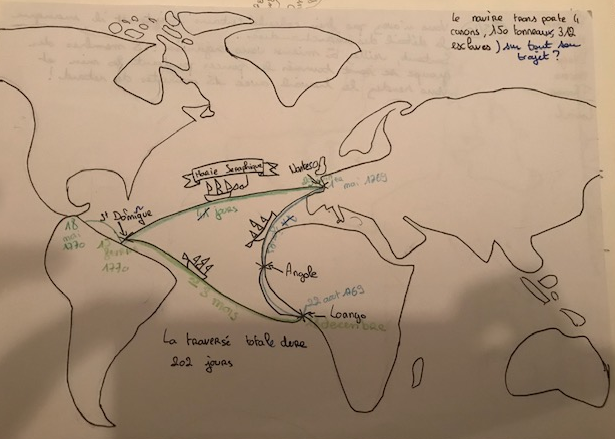 le navire transporte 4
canons, 150 tonneaux, 312
esclaves) sur tout son
trajet ?
Marie Séraphique
Nantes
mai 1769
St Domingue
jours
18
mai
1770
1770
Angole
22 août 1769
Loango
décembre
3 mois
La traversé totale dure
202 jours